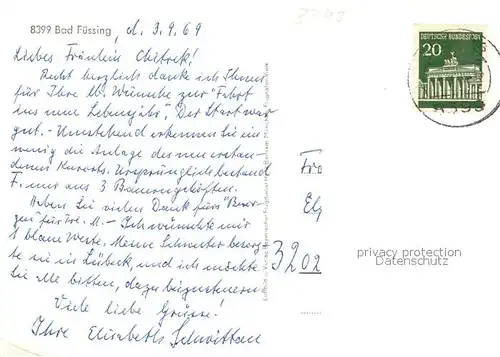 8399 Bad Füssing, d. 3.9.69
Liebes Fräulein
Recht herzlich danke ich Ihnen
für Ihre lb. Wünsche zur "Fahrt
ins neue Lebensjahr". Der Start war
gut. - Umstehend erkennen Sie ein
wenig die Anlage des neuerstan-
denen Kurorts. Ursprünglich bestand
F. nur aus 3 Bauerngehöften.
Haben Sie vielen Dank fürs "Besor-
gen" für Ich wünschte mir
1 blaue Weste. Meine Schwester besorg-
te sie in Lübeck, und ich möchte
Sie alle bitten, dazu beizusteuern.
Viele liebe Grüsse!
Ihre Elisabeth
DEUTSCHE BUNDESPOST
20
8399
Frä
3202
privacy protection
Datenschutz